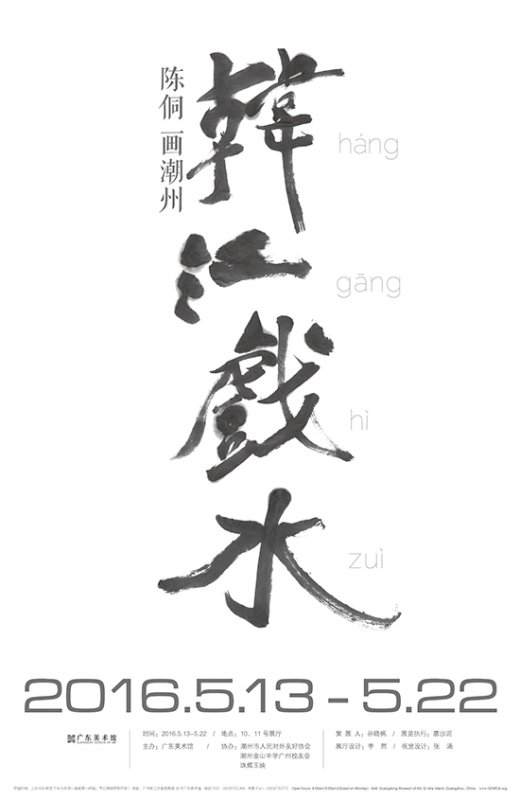 陈侗 画潮州
韓江戲水
háng
gāng
hì
zuì
2016.5.13 – 5.22
广东美术馆
时间：2016.5.13–5.22 / 地点：10、11 号展厅
主办：广东美术馆 / 协办：潮州市人民对外友好协会
潮州金山中学广州校友会
珠蝶玉映
策展人：孙晓枫 / 展览执行：廖沙茈
展厅设计：李熙 / 视觉设计：张涵